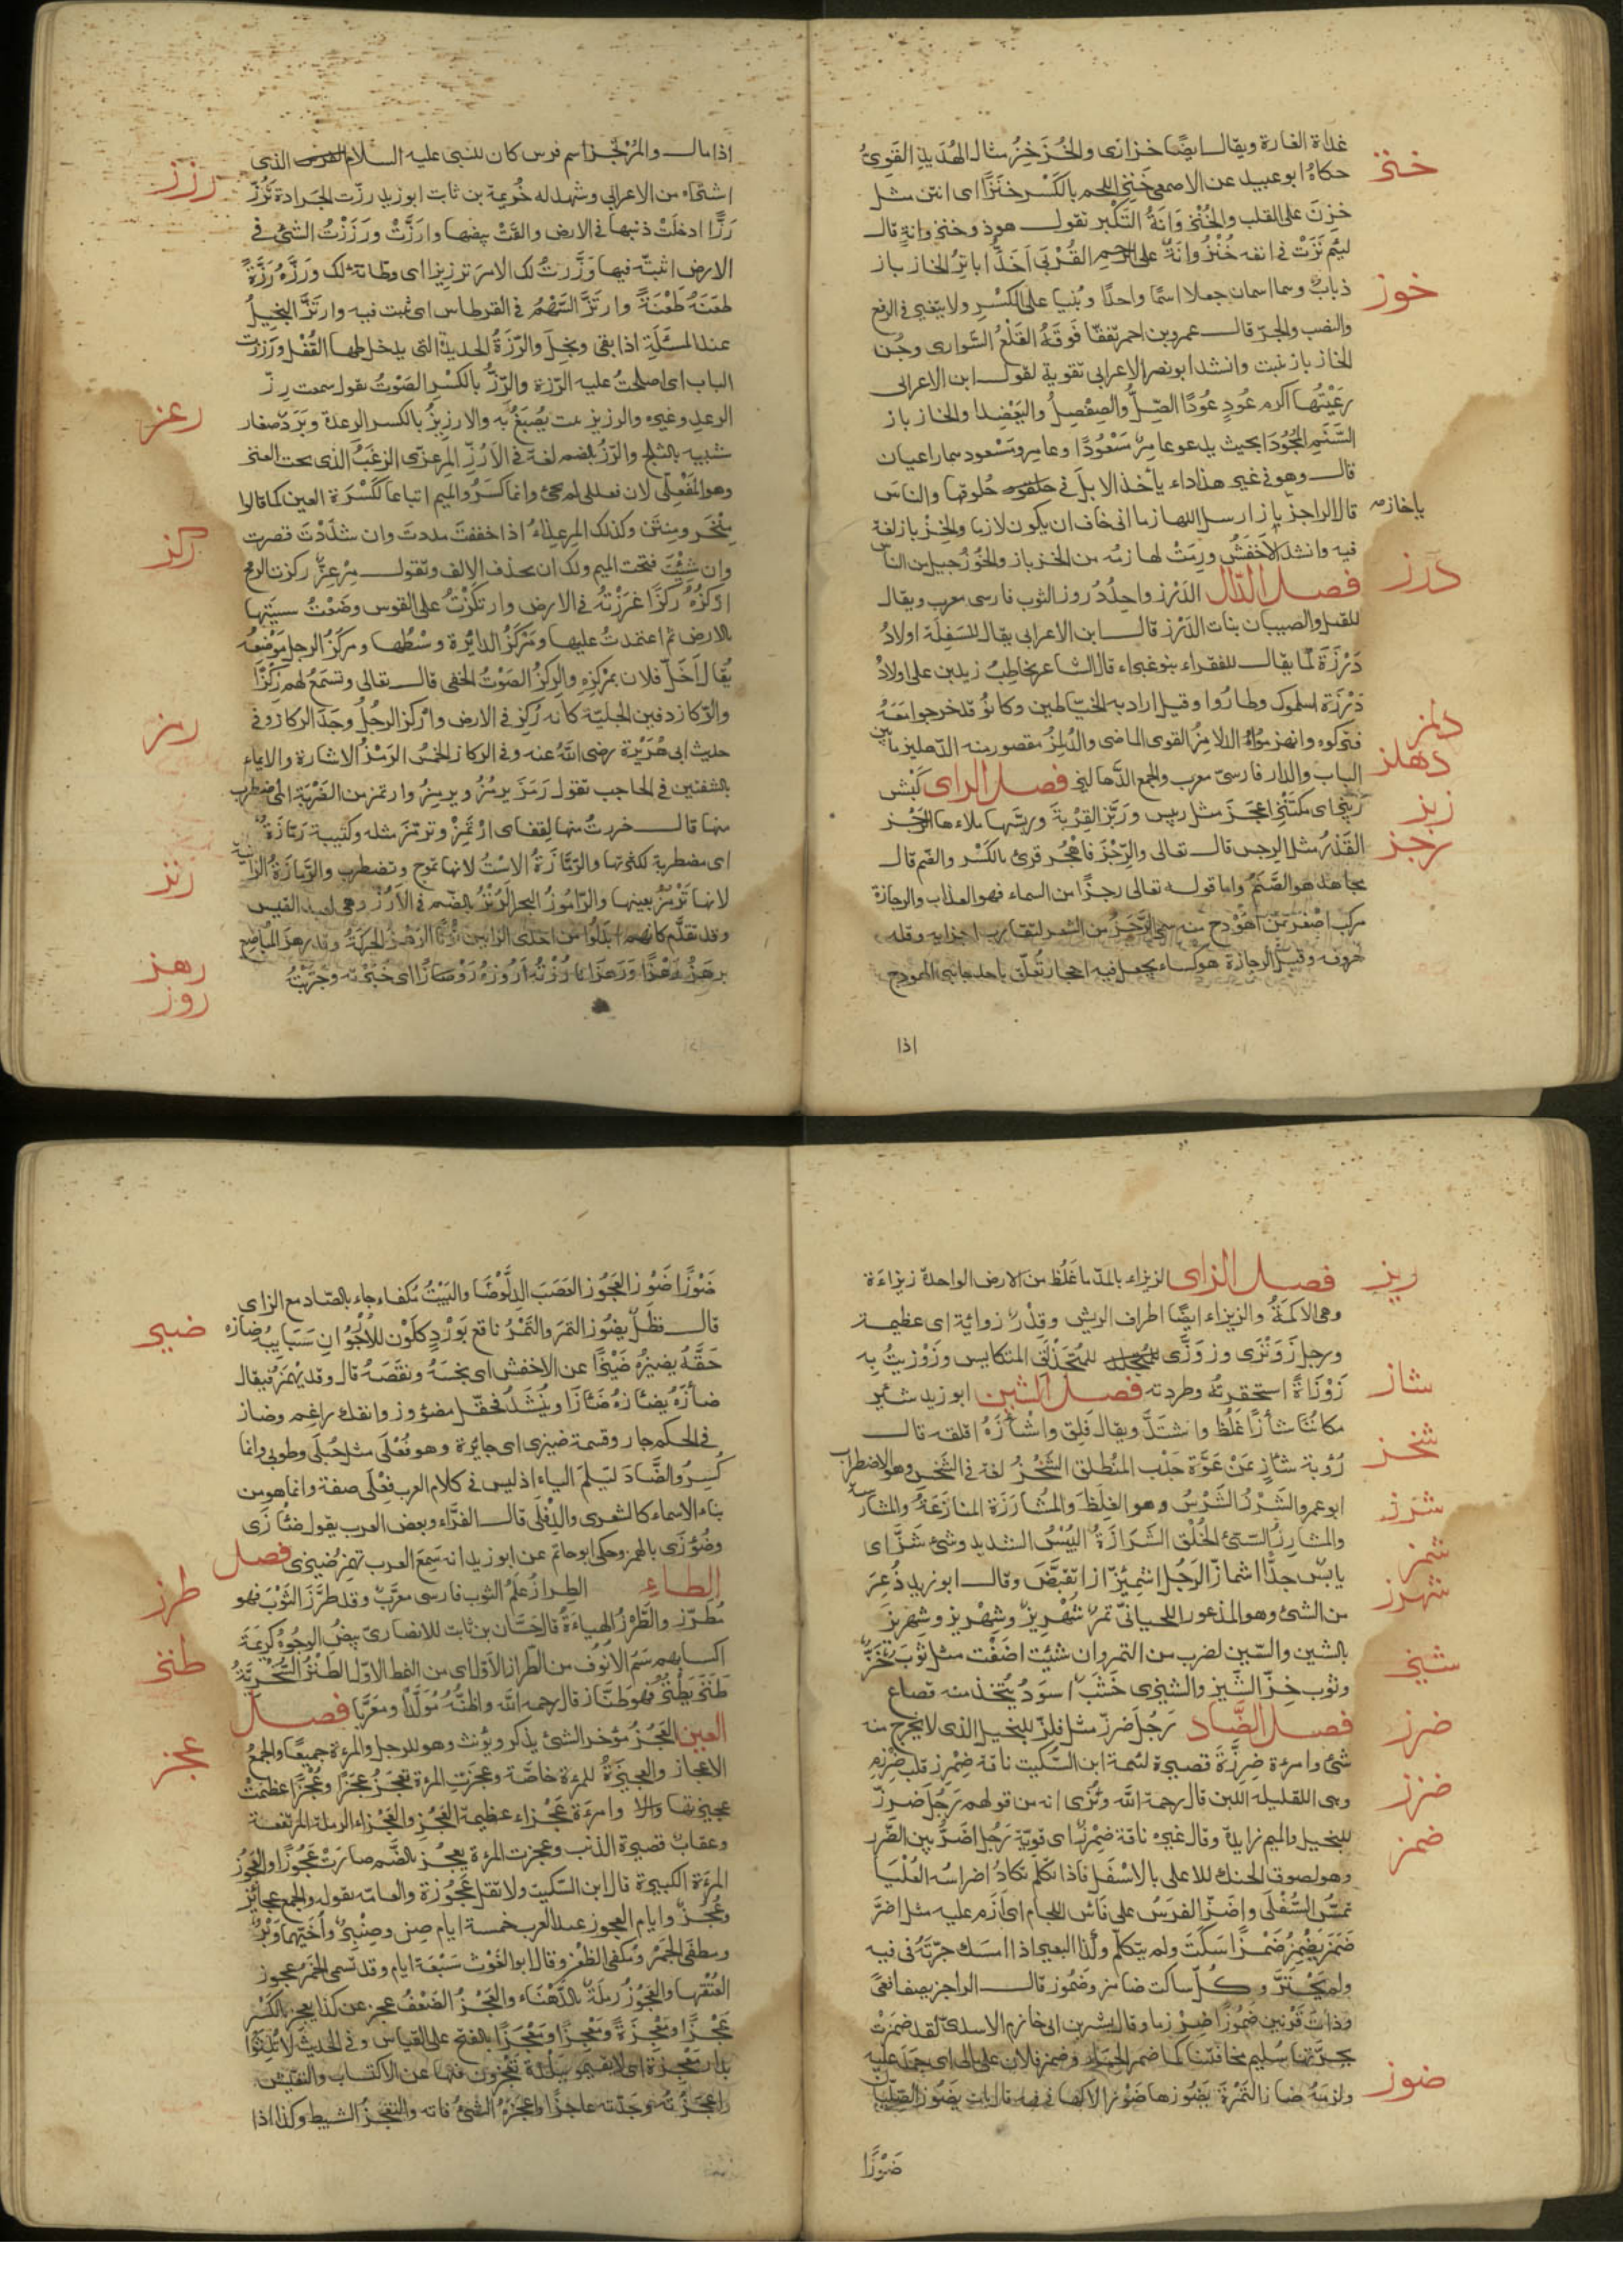 غداة الغارة ويقال ايضا خزازى والخُزَخِزُ مثال الهُدَبِدِ القَوِيُّ
خنز
حكاهُ ابو عبيد عن الاصمعى خَنِزَ اللحم بالكَسْرِ خَنَزًا اى انتن مثل
خَزِنَ على القلب والخُنْزُوَانَةُ التَكَبُّر تقول هو ذو خنزوانةٍ قال
ليئم نَزَتْ فى انفه خُنْزُوانَةٌ على الرحِمِ القُرْبَى اَحَذُّ اباتِرُ الخازِ بازِ
خوز
ذبابٌ وهما اسمان جعلا اسمًا واحدًا وبُنِيا على الكَسْرِ ولا يتغير فى الرفع
والنصب والجرّ قال عمرو بن احمر تفقّا فَوقَهُ القَلَعُ السَّوارى وجُنّ
الخاز باز نبت وانشد ابو نصر الاعرابى تقوية لقول ابن الاعرابى
رَعَيْتُها اكرم عُودٍ عُودًا الصِّلَّ والصِفْصِلَّ واليَعْضِيدا والخاز باز
السَّنِمِ المَجُودَا بحيث يدعو عامِرٌ مَسْعُودًا وعامِر ومَسْعود هما راعيان
قال وهو فى غير هذا داء يأخذ الابلَ فى حلوقها والناسَ
قال الراجز يا خازِ بازِ ارسل اللهازما انى خاف ان يكون لازما والخِزْ باز لغة
يا خازصح
فيه وانشد الاَخفَش ورِمَتْ لهازمُه من الخزباز والخُوزُ جيل من الناس
درز
فصل الدّال الدَرْز واحِدُ دُروز الثوب فارسى معرب ويقال
للقمل والصيبان بنات الدَرْز قال ابن الاعرابى يقال للسَفِلَة اولادُ
دَرْزَة كما يقال للفقراء بنو غبراء قال الشاعر يخاطب زيد بن على اولادُ
دَرْزة اسلموك وطارُوا وقيل اراد به الخيّاطين وكانوُ قد خرجوا مَعَهُ
دلمز
فتركوه وانهزموا الدلامِزُ القوى الماضى والدُلَمِزُ مقصور منه الدّهليز ما بين
دهلز
الباب والدار فارسىّ معرب والجمع الدَّهاليز فصل الراى كَبْش
ربز
رَبيزٌ اى مكتنز اعجَزَ مثل ربيس ورَبَّزَ القِرْبةَ وربَّسَها ملاءها الرَّجْز
رجز
القَذَرُ مثل الرجس قال تعالى والرِّجْزَ فاهْجُر قرئ بالكَسْر والضم قال
مجاهد هو الصَّنَمُ واما قوله تعالى رجزًا من السماء فهو العذاب والرجازة
مركب اصغر من الهَوْدج منه سمى الرَّجَزُ من الشعر لتقارب اجزايه وقلة
حروفه وقيل الرجازة هو كساء يجعل فيه احجار تعلّق باحد جانبى الهودج
اذا
اذا مال والمُرْتَجِز اسم فرس كان للنبى عليه السلام الذى
رزز
اشتراه من الاعرابى وشهد له خُزيمة بن ثابت ابو زيد رزّت الجَرادة تَرُزّ
رَزًّا ادخلَتْ ذنبها فى الارض والقَتْ بيضها وارَزَّتْ ورَزَزْتُ الشئَ فى
الارض اثبتّه فيها ورَزَّزتُ لك الامرَ تَرزيزا اى وطّاته لك ورَزَّهُ رَزَّةً
طعَنَهُ طَعْنَةً وارتَزَّ السَّهْمُ فى القرطاس اى ثبت فيه وارتَزَّ البخيلُ
عند المسئَلَةِ اذا بقى وبَخِلَ والرَّزّةُ الحديدة التى يدخل فيها القُفْل ورَزَزتُ
الباب اى اصلحتُ عليه الرَزة والرِّزُّ بالكَسْرِ الصَوْتُ تقول سمعت رِزَّ
رعز
الرعدِ وغيره والرزيز نبت يُصبَغُ به والارزيزُ بالكسر الرعدة وبَرَدٌ صغار
شبيه بالثلج والرُّزُّ بالضم لغة فى الاَرُزّ المِرعِزّى الزغَبُ الذى تحت العنز
وهو مَفْعِلّى لان فعللى لم يجئ وانما كسَرُوا الميم اتباعًا لكَسْرَة العين كما قالوا
ركز
مِنْخَر ومِنتِن وكذلك المِرعِزاءُ اذا خففتَ مددتَ وان شدَّدْتَ قصرت
وان شئتَ فتحت الميم ولك ان تحذف الالف وتقول مِرْعِزٌّ ركزت الرمح
اركُزُهُ رَكْزًا غرَزْتُه فى الارض وارتكَزْتُ على القوس وضعْتُ سيتها
بالارض ثم اعتمدتُ عليها ومَرْكَزُ الدائرة وسْطُها ومركَزُ الرجل موْضِعُه
يُقال اَخَلّ فلان بمَرْكَزِهِ والرِكزُ الصَوْتُ الخفى قال تعالى وتَسمَعُ لهم رِكْزًا
رمز
والرّكاز دفين الجاهلية كانه رُكِزَ فى الارض واَركز الرجُلُ وجَدَ الركاز وفى
حديث ابى هُرَيْرة رضى اللّهُ عنه وفى الركاز الخمس الرَمْزُ الاشارة والايماء
بالشفتين فى الحاجب تقول رَمَزَ يرمُزُ ويرمِزُ وارتمز من الضَرْبَة اى اضطرب
منها قال خررتُ منها لِقَفاى ارْتَمِزْ وترمّزَ مثله وكتيبة رَمّازَةٌ
رنز
اى مضطربة لكثرتها والرَمّازَةُ الاِسْتُ لانها تموج وتضطرب والرَمّازَةُ الزانية
لانها تَرْمُزُ بعينها والرّامُوزُ البحر الرُنْزُ بالضّم فى الاَرُزّ وهى لعبد القيس
وقد تقدّم كانهم ابدَلُوا من احدى الزايين نُونًا الرَهْزُ الحركةُ وقد رهزَ المباضع
رهز
روز
يرهَزُ رَهْزًا ورَهَزانًا رُزْتُه اَروزهُ رَوْزًا اى خبَرْته وجرّبْتُه
ريز
فصل الزاى الزيزاء بالمدّ ما غَلُظ من الارض الواحدة زيزاءَة
وهى الاكمَةُ والزيزاء ايضًا اطراف الريش وقِدْرٌ زوازيَة اى عظيمة
ورجل زَوَنْزَى وزَوَزَّى للمُتَحَذْلق المتكايس وزَوْزيتُ به
شاز
زَوْزَاةً استحقرتُه وطردته فصل الشين ابو زيد شئِزَ
مكانُنا شأزًا غَلُظ واشتدَّ ويقال قَلِق واشْأَزَهُ اقلقه قال
شخز
رُؤبة شأزٍ بمَنْ عَوَّة جَدْب المُنْطلَق الشَّخْزُ لغة فى الشَخْسِ وهو الاضطراب
شرز
ابو عمرو الشَّرْزُ الشَّرْسُ وهو الغِلَظ والمُشارَزَة المنازَعَةُ والمشارسة
والمشارِزُ السّيّئُ الخُلُق الشَرازةُ اليُبْسُ الشديد وشئ شَزٌّ اى
شمز
يابس جدًّا اشمازّ الرَجُل اشمِيْزازا تقبَّضَ وقال ابو زيد ذُعِرَ
شهرز
من الشئ وهو المذعور اللحيانىّ تمرٌ شُهْرِيزٌ وشِهْرِيز وسِهْرِيزٌ
بالشين والسّين لضرب من التمر وان شئت اضَفْتَ مثل ثوبٌ خزٌّ
شيز
وثوب خزٍّ الشّيز والشيزى خَشَبٌ اسوَدُ يُتّخذ منه قصاع
ضرز
فصل الضَّاد رَجُل ضِرِزّ مثل فِلِزٍّ للبخيل الذى لا يخرج منه
شئ وامرءَة ضِرِزَّة قصيرة لئيمة ابن السّكيت ناقة ضِمْرِز قلب ضِرْزِم
ضزز
وهى القليلة اللبن قال رحمة اللّه ونُرَى انه من قولهم رَجُل ضِرِزّ
ضمز
للبخيل والميم زايدة وقال غيره ناقة ضِمْرِزٌ اى قويّة رَجُل اضَزُّ بيّن الضَزَز
وهو لصوق الحنك الاعلى بالاسْفَل فاذا تكلّم تكادُ اضراسُه العُلْيَا
تمسُّ السُفْلَى واضَزّ الفَرَسُ على فَأس اللجام اى اَزَم عليه مثل اضَرَّ
ضَمَزَ يَضْمِزُ ضَمْزًا سَكَتَ ولم يتكلّم وكذا البعير اذا امسك جِرَّتَهُ فى فيه
ولم يَجْتَرّ وكُلّ ساكت ضامِز وضَمُوز قال الراجز يصف افعىً
وذاتَ قَرْنين ضَمُوزًا ضِرْزما وقال بشر بن ابى خازم الاسدىّ لقد ضَمَزَتْ
بجِرّتها سُلَيم مخافتَنا كما ضمز الحِمار وضمز فلان على مالى اى جمد عليه
ضوز
ولزمهُ ضاز التَمْرَةَ يَضُوزها ضَوْزا لاكها فى فيه قال بات يَضُوز الصِلِّيان
ضَوْزًا
ضَوْزًا ضَوْز العَجُوز العَصَبَ الدِلَّوْصَا والبَيْتُ مُكفاء جاء بالصّاد مع الزاى
ضيز
قال فظلّ يضُوز التمرَ والتَمْرُ ناقع بوَرْدٍ كلَوْنِ الاُرْجُوَانِ سَبَايبُهْ ضازه
حقَّهُ يضيزُه ضَيْزًا عن الاخفش اى بخسَهُ ونقصَهُ قال وقد يُهْمَز فيقال
ضأزَهُ يضأزهُ ضَأزًا ويُنْشَدُ فحقّك مضؤوز وانفك راغم وضاز
فى الحكم جار وقسمة ضيزى اى جايرة وهو فُعْلَى مثل حُبْلَى وطوبى وانما
كُسِرَ الضَّادَ ليَسْلَمَ الياء اذ ليس فى كلام العرب فِعْلَى صفة وانما هو من
بناء الاسماء كالشعرى والدِفْلَى قال الفَرّاء وبعض العرب يقول ضئزَى
وضُؤزَى بالهمز وحكى ابو حاتم عن ابو زيد انه سَمِعَ العرب تهمز ضيزى فصل
طرز
الطاء الطِرازُ عَلَمُ الثوب فارسى معرَّبٌ وقد طَرَّزَ الثَوْبَ فهو
مُطَرّز والطَّرْزُ الهياءَةُ قال حَسّان بن ثابت الانصارىّ بِيضُ الوجُوهِ كريمَةٌ
طنز
احسابهم شُمُّ الاُنُوف من الطّراز الاَوّل اى من النمط الاوّل الطَنْزُ السُّخْرِيَّةُ
طَنَزَ يَطْنُزُ فهو طنّاز قال رحمه اللّه واظنُّهُ مُوَلَّدًا ومعَرَّبًا فصل
عجز
العين العَجُزُ مؤخر الشئ يذكر ويؤنث وهو للرجل والمرءة جميعًا والجمعُ
الاعجاز والعجيزَةُ للمرءة خاصّة وعجزَتِ المرءة تعجَزُ عَجَزًا وعُجْزًا عظمَتْ
عجيزتها وامرءَة عَجْزاء عظيمة العَجُز والعَجْزاء الرملة المرتفعة
وعقابٌ قصيرة الذنب وعجزت المرءة يعجُز بالضّم صارَتْ عَجُوزًا والعَجُوز
المرءة الكبيرة قال ابن السّكيت ولا تقل عَجُوزة والعامّة تقوله والجمع عجايز
وعُجُزٌ وايام العجوز عند العرب خمسة ايام صِنّ وصِنَّبْرٌ واُخَيّهما وَبْرٌ
ومطفئ الجَمْر ومُكفئ الظُعْن وقال ابو الغَوْث سَبْعَة ايام وقد تسمى الخمرُ عجوز
لعتْقِها والعَجُوزُ رملَةٌ بالدَّهْنَاء والعَجْزُ الضَعْفُ عجز عن كذا يعجِز بالكَسْر
عَجْزًا ومَعْجِزَةً ومَعْجَزَةً ومَعْجِزًا ومَعْجَزًا بالفتح على القياس وفى الحديث لا تُلِثُّوا
بدار مَعْجِزَة اى لا تقيموا ببَلْدة تَعْجِزون فيها عن الاكتساب والتعيّش
واعجَزْتُه وجَدْته عاجزًا واعجَزَهُ الشئُ فاته والتعْجيزُ التثبيط وكذا اذا